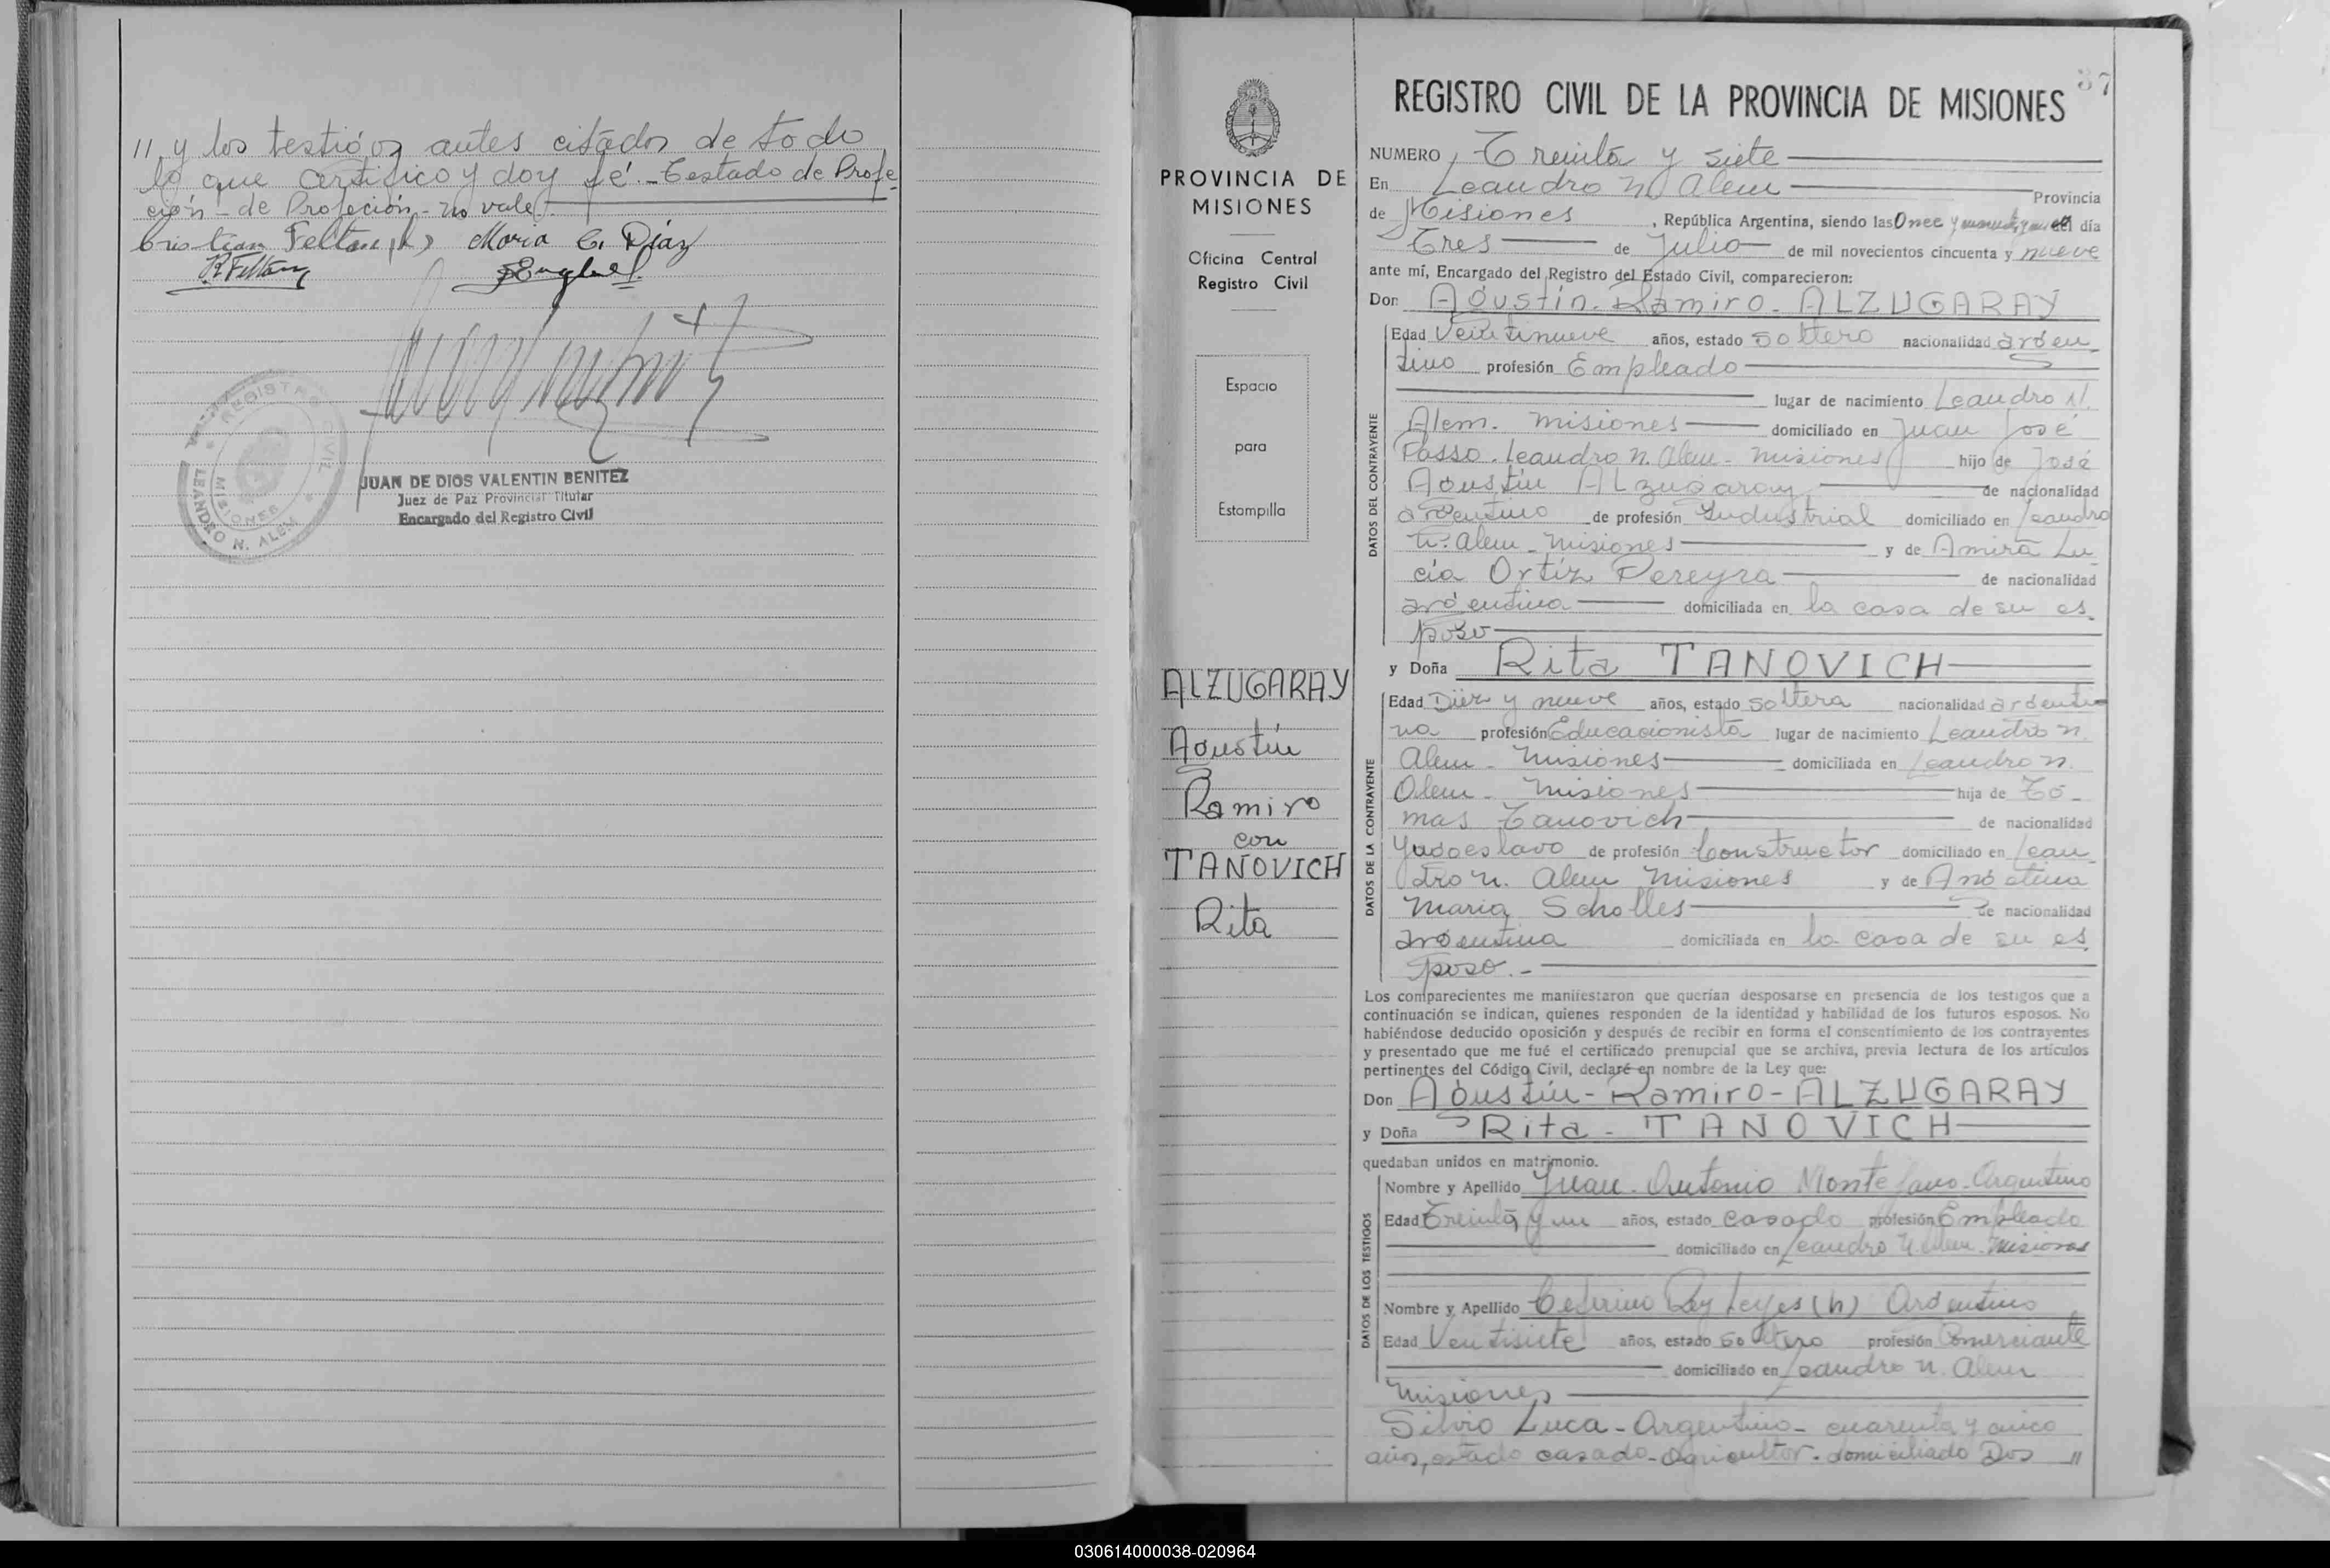 // y los testigos antes citados de todo
lo que certifico y doy fé.- Testado de Profe-
ción - de Profeción - no vale.
Cristian Feltan (h) Maria C. Diaz
JUAN DE DIOS VALENTIN BENITEZ
Juez de Paz Provincial Titular
Encargado del Registro Civil
REGISTRO CIVIL
MISIONES
LEANDRO N. ALEM
PROVINCIA DE
MISIONES
Oficina Central
Registro Civil
Espacio
para
Estampilla
ALZUGARAY
Agustin
Ramiro
con
TANOVICH
Rita
37
REGISTRO CIVIL DE LA PROVINCIA DE MISIONES
NUMERO Treinta y siete
En Leandro N. Alem Provincia
de Misiones, República Argentina, siendo las Once y del día
Tres de Julio de mil novecientos cincuenta y nueve
ante mí, Encargado del Registro del Estado Civil, comparecieron:
Don Agustin. Ramiro. ALZUGARAY
DATOS DEL CONTRAYENTE
Edad Veintinueve años, estado soltero nacionalidad argen
tino profesión Empleado
lugar de nacimiento Leandro N.
Alem. Misiones domiciliado en Juan José
Passo. Leandro N. Alem - Misiones hijo de José
Agustin Alzugaray de nacionalidad
argentino de profesión Industrial domiciliado en Leandro
N. Alem - Misiones y de Amira Lu
cia Ortiz Pereyra de nacionalidad
argentina domiciliada en la casa de su es
poso
y Doña Rita TANOVICH
DATOS DE LA CONTRAYENTE
Edad Diez y nueve años, estado soltera nacionalidad argenti
na profesión Educacionista lugar de nacimiento Leandro N.
Alem - Misiones domiciliada en Leandro N.
Alem - Misiones hija de To-
mas Tanovich de nacionalidad
Yugoeslavo de profesión Constructor domiciliado en Lean
dro N. Alem Misiones y de Angelina
Maria Scholles de nacionalidad
argentina domiciliada en la casa de su es
poso.-
Los comparecientes me manifestaron que querían desposarse en presencia de los testigos que a
continuación se indican, quienes responden de la identidad y habilidad de los futuros esposos. No
habiéndose deducido oposición y después de recibir en forma el consentimiento de los contrayentes
y presentado que me fué el certificado prenupcial que se archiva, previa lectura de los artículos
pertinentes del Código Civil, declaré en nombre de la Ley que:
Don Agustin - Ramiro - ALZUGARAY
y Doña Rita - TANOVICH
quedaban unidos en matrimonio.
DATOS DE LOS TESTIGOS
Nombre y Apellido Juan - Antonio Montejano - Argentino
Edad Treinta y un años, estado casado profesión Empleado
domiciliado en Leandro N. Alem - Misiones
Nombre y Apellido Ceferino Rey Leyes (h) Argentino
Edad Ventisiete años, estado soltero profesión Comerciante
domiciliado en Leandro N. Alem
Misiones
Silvio Luca - Argentino - cuarenta y cinco
años, estado casado - Agricultor - domiciliado Dos //
030614000038-020964